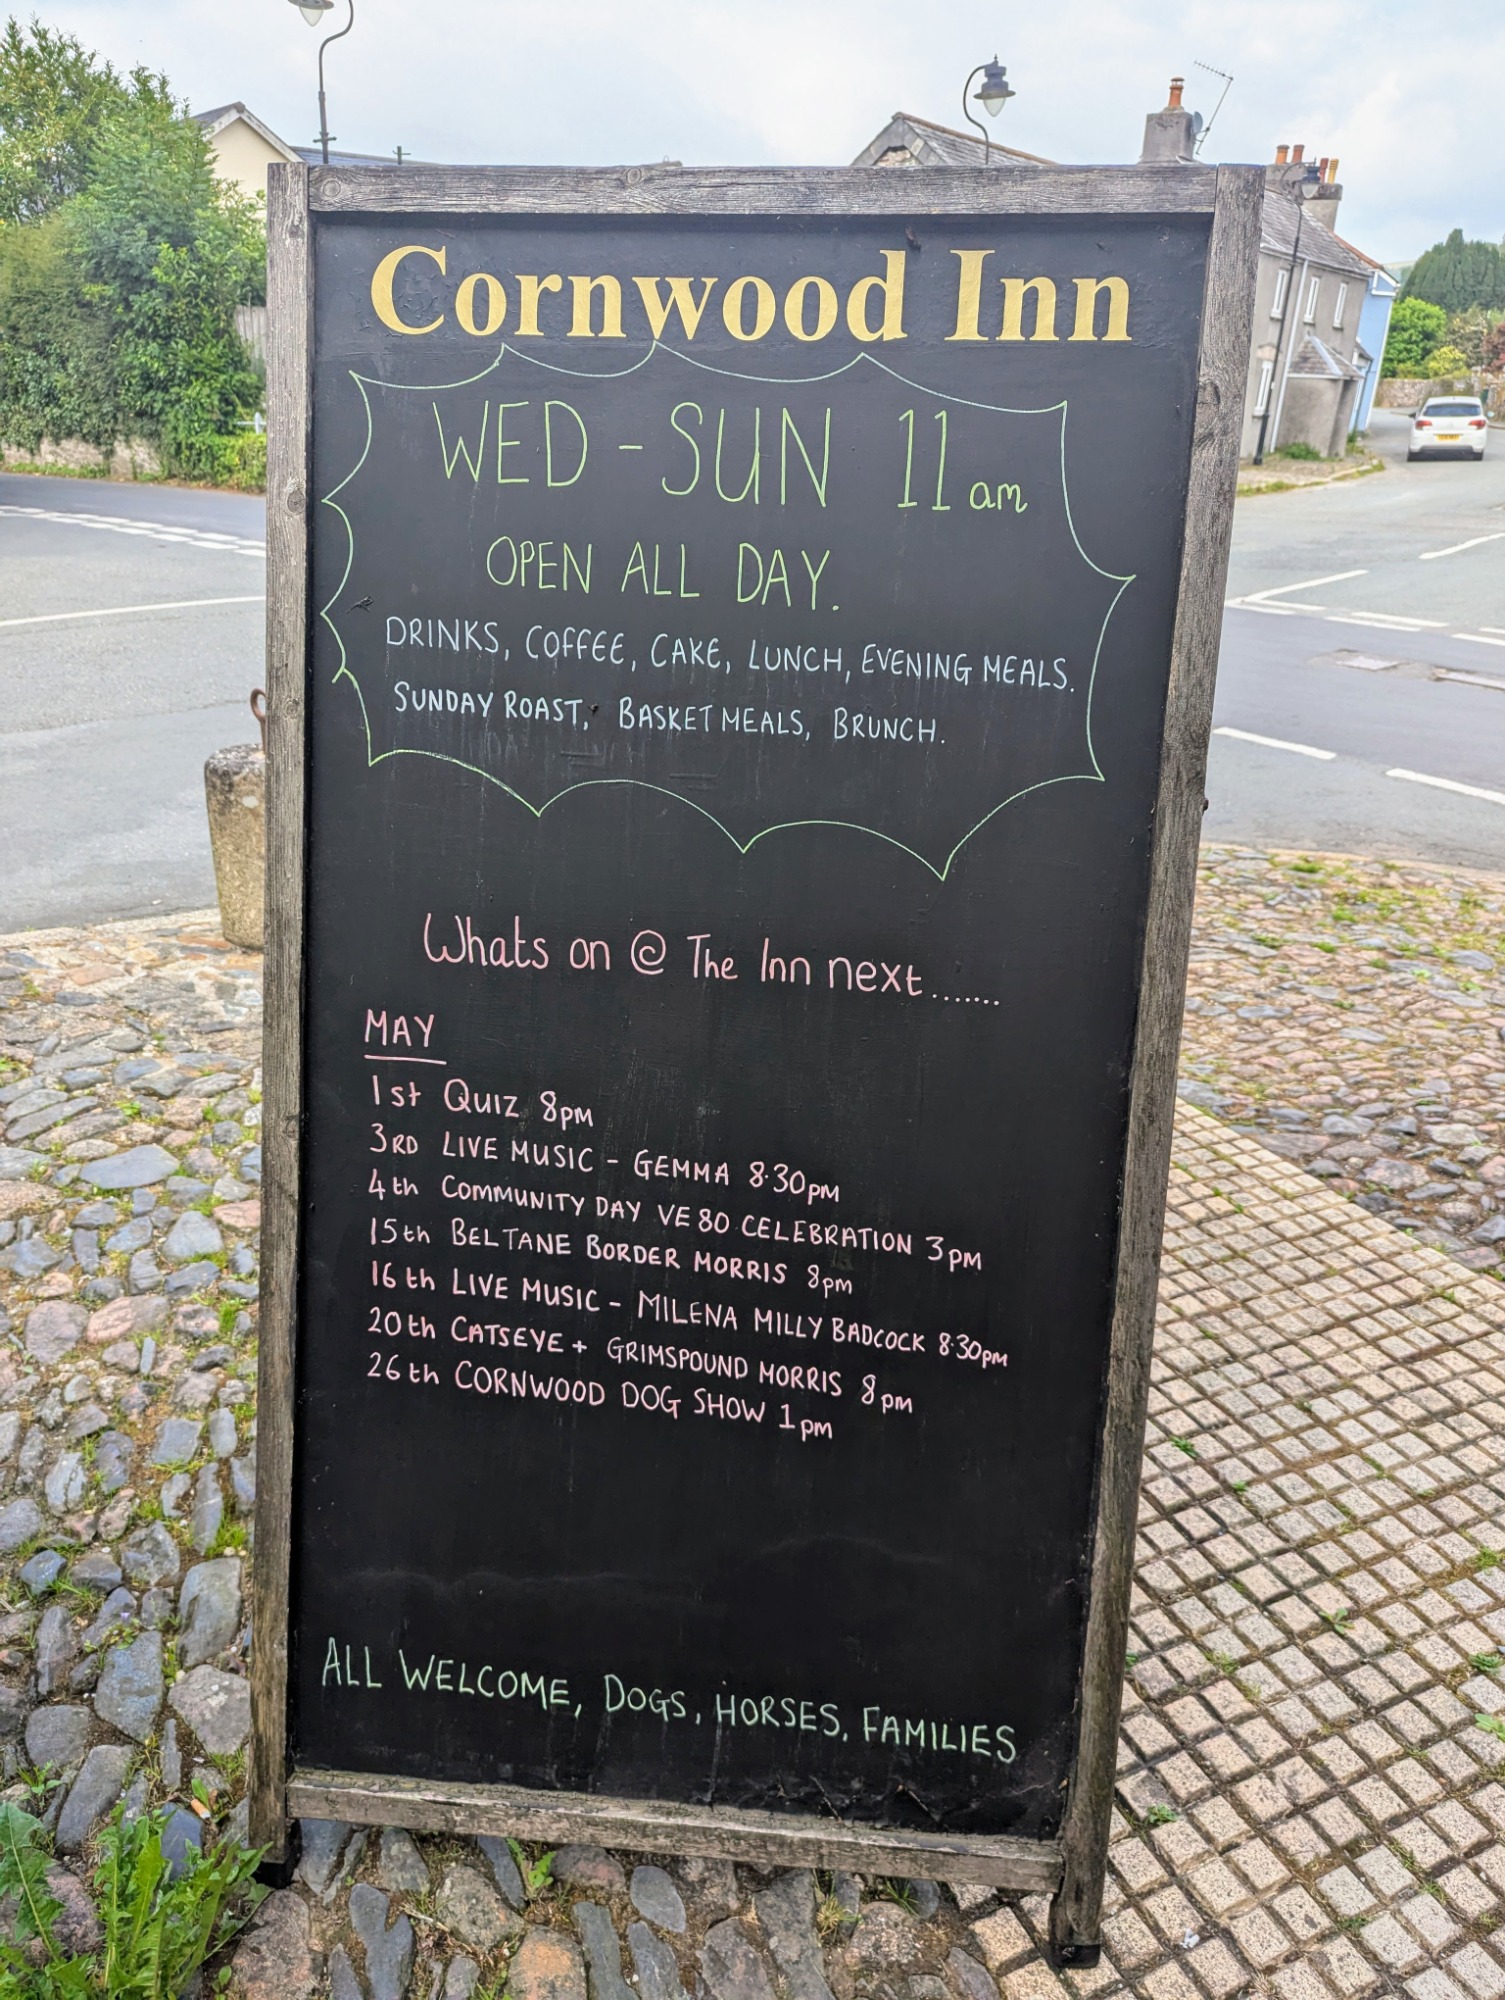 Cornwood Inn
WED - SUN 11am
OPEN ALL DAY.
DRINKS, COFFEE, CAKE, LUNCH, EVENING MEALS.
SUNDAY ROAST, BASKET MEALS, BRUNCH.
Whats on @ The Inn next.......
MAY
1st QUIZ 8pm
3RD LIVE MUSIC - GEMMA 8.30pm
4th COMMUNITY DAY VE 80 CELEBRATION 3pm
15th BELTANE BORDER MORRIS 8pm
16th LIVE MUSIC - MILENA MILLY BADCOCK 8.30pm
20th CATSEYE + GRIMSPOUND MORRIS 8pm
26th CORNWOOD DOG SHOW 1pm
ALL WELCOME, DOGS, HORSES, FAMILIES